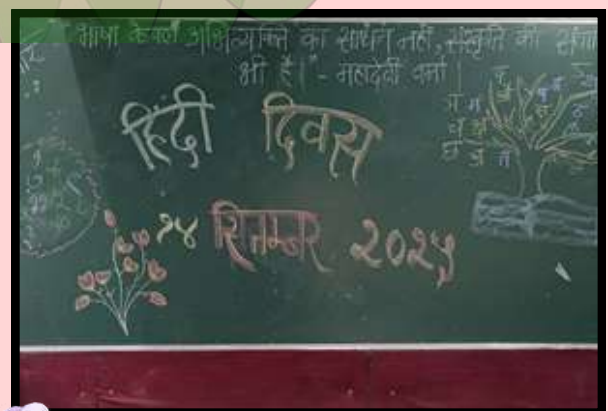 भाषा केवल अभिव्यक्ति का साधन नहीं, संस्कृति की
भी है।" - महादेवी वर्मा
हिंदी दिवस
१४ सितम्बर २०२५